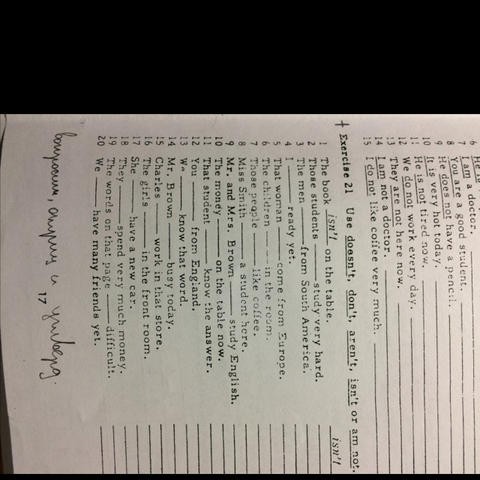 6 He is
7 I am a doctor.
8 You are a good student.
9 He does not have a pencil.
10 It is very hot today.
11 He is not tired now.
12 We do not work every day.
13 They are not here now.
14 I am not a doctor.
15 I do not like coffee very much.
+ Exercise 21 Use doesn't, don't, aren't, isn't or am not.
1 The book isn't on the table. isn't
2 Those students ___ study very hard.
3 The men ___ from South America.
4 I ___ ready yet.
5 That woman ___ come from Europe.
6 The children ___ in the room.
7 Those people ___ like coffee.
8 Miss Smith ___ a student here.
9 Mr. and Mrs. Brown ___ study English.
10 The money ___ on the table now.
11 That student ___ know the answer.
12 You ___ from England.
13 We ___ know that word.
14 Mr. Brown ___ busy today.
15 Charles ___ work in that store.
16 The girls ___ in the front room.
17 She ___ have a new car.
18 They ___ spend very much money.
19 The words on that page ___ difficult.
20 We ___ have many friends yet.
17